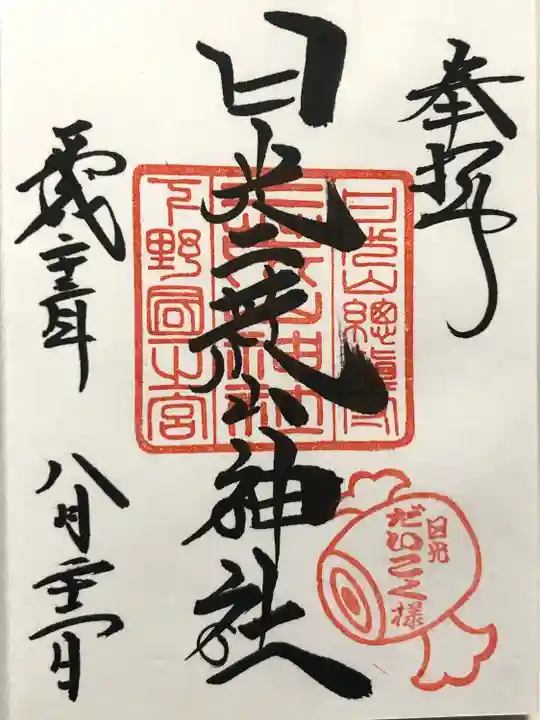 奉拝
日光山總鎮守
日光二荒山神社
二荒山神社
下野國一之宮
二十三年
八月二十一日
日光
だいこく様